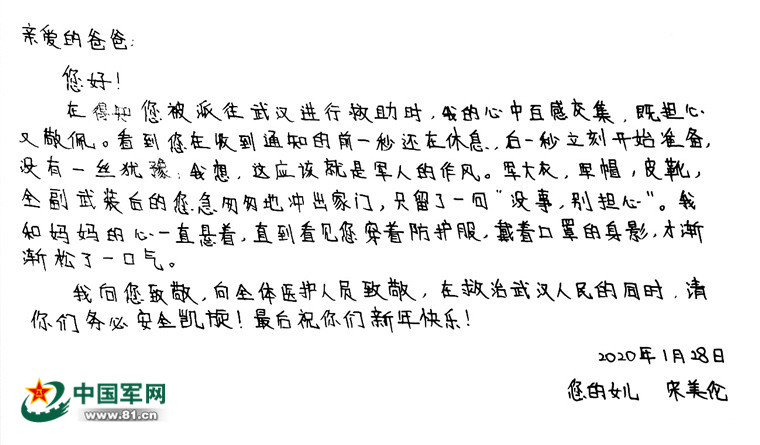 亲爱的爸爸：
您好！
在得知您被派往武汉进行救助时，我的心中百感交集，既担心
又敬佩。看到您在收到通知的前一秒还在休息，后一秒立刻开始准备，
没有一丝犹豫，我想，这应该就是军人的作风。军大衣，军帽，皮靴，
全副武装后的您急匆匆地冲出家门，只留了一句“没事，别担心”。我
和妈妈的心一直悬着，直到看见您穿着防护服，戴着口罩的身影，才渐
渐松了一口气。
我向您致敬，向全体医护人员致敬，在救治武汉人民的同时，请
你们务必安全凯旋！最后祝你们新年快乐！
2020年1月28日
您的女儿 宋美伦
中国军网
www.81.cn